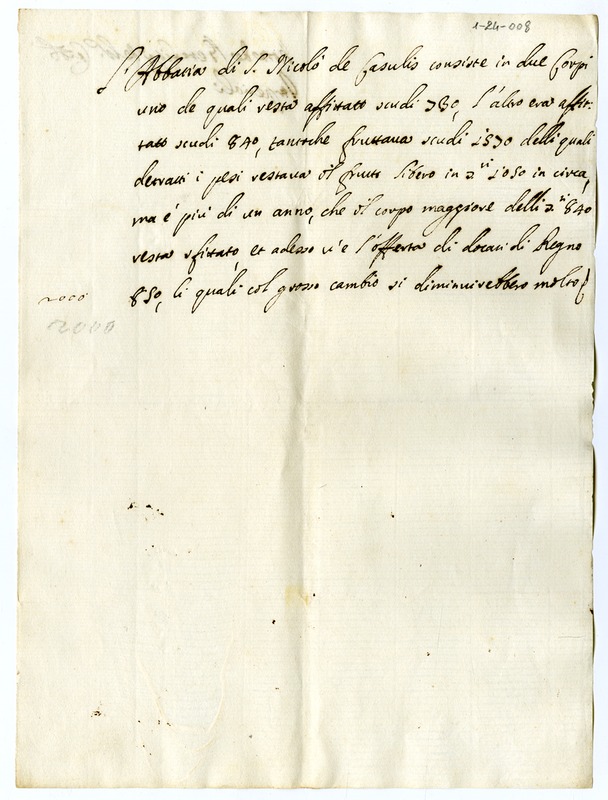 1-24-008
L'Abbatia di S. Nicolò de Casulis consiste in due Corpi
uno de quali resta affittato scudi 730, l'altro era affit-
tato scudi 840, tantoche fruttava scudi 1570 delli quali
detratti i pesi restava il frutto libero in ▽ti 1050 in circa,
ma é più di un anno, che il corpo maggiore delli ▽ti 840
resta sfittato, et adesso v'è l'offerta di docati di Regno
850, li quali col grosso cambio si diminuirebbero molto
2000
2000